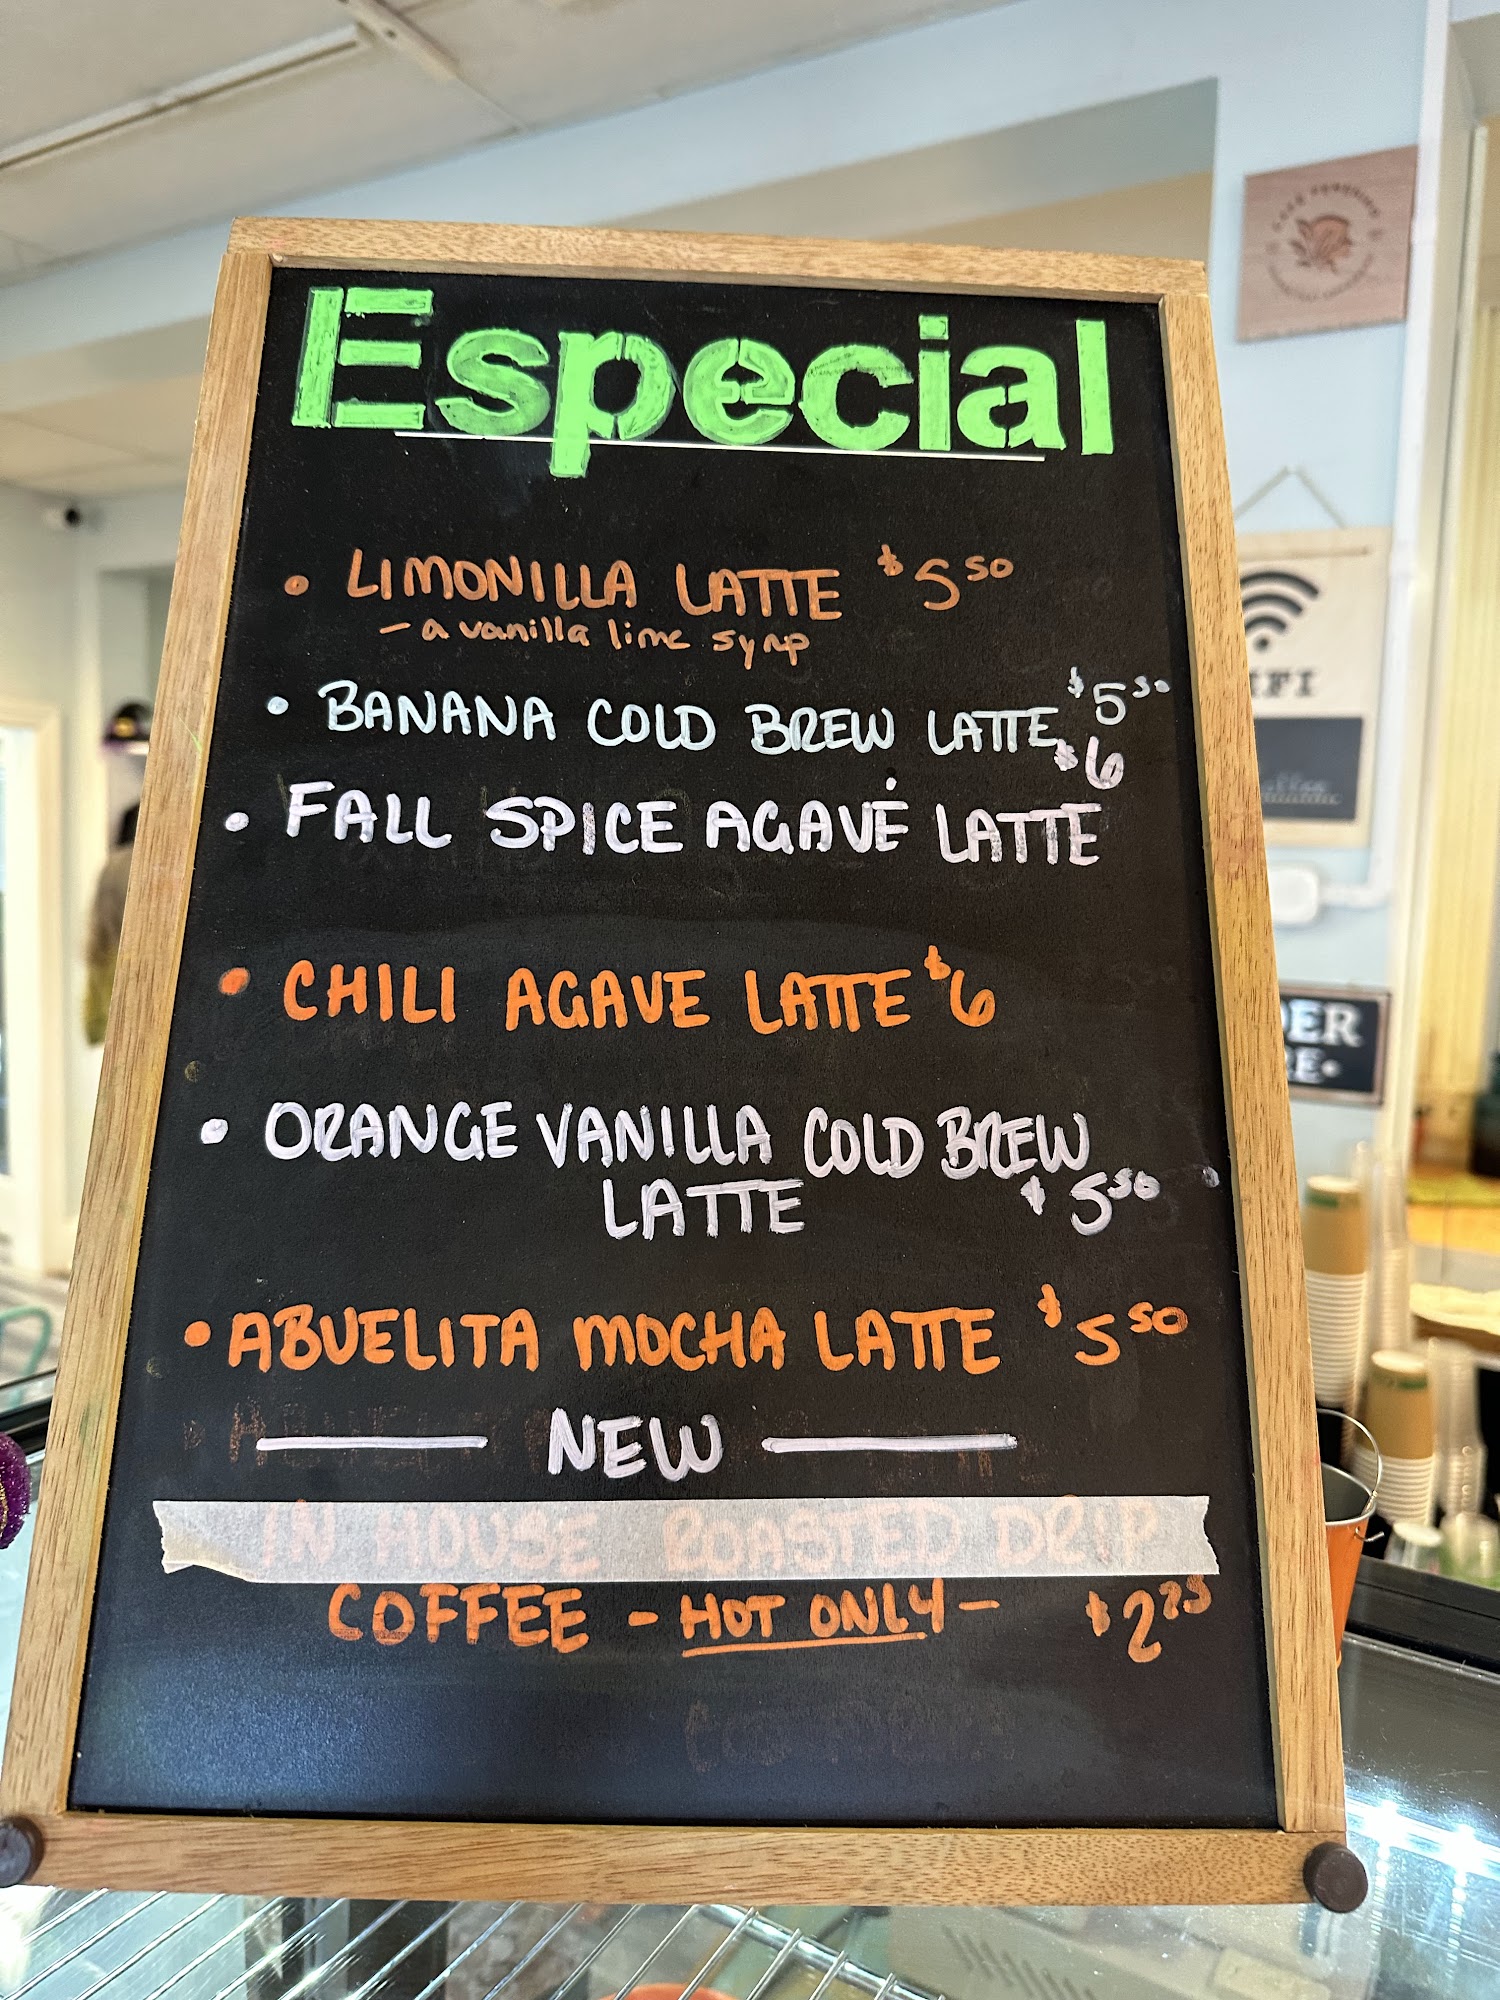 Especial
• LIMONILLA LATTE $5 50
- a vanilla lime syrup
• BANANA COLD BREW LATTE $5 50
$6
• FALL SPICE AGAVĖ LATTE
• CHILI AGAVE LATTE $6
• ORANGE VANILLA COLD BREW
LATTE $5 50
• ABUELITA MOCHA LATTE $5 50
NEW
IN HOUSE ROASTED DRIP
COFFEE - HOT ONLY - $2 75
WIFI